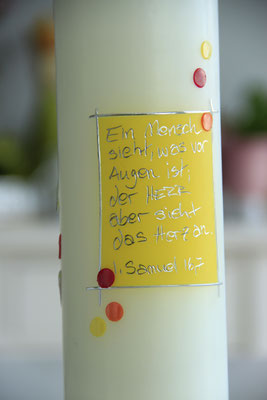 Ein Mensch
sieht, was vor
Augen ist;
der HERR
aber sieht
das Herz an.
1. Samuel 16,7